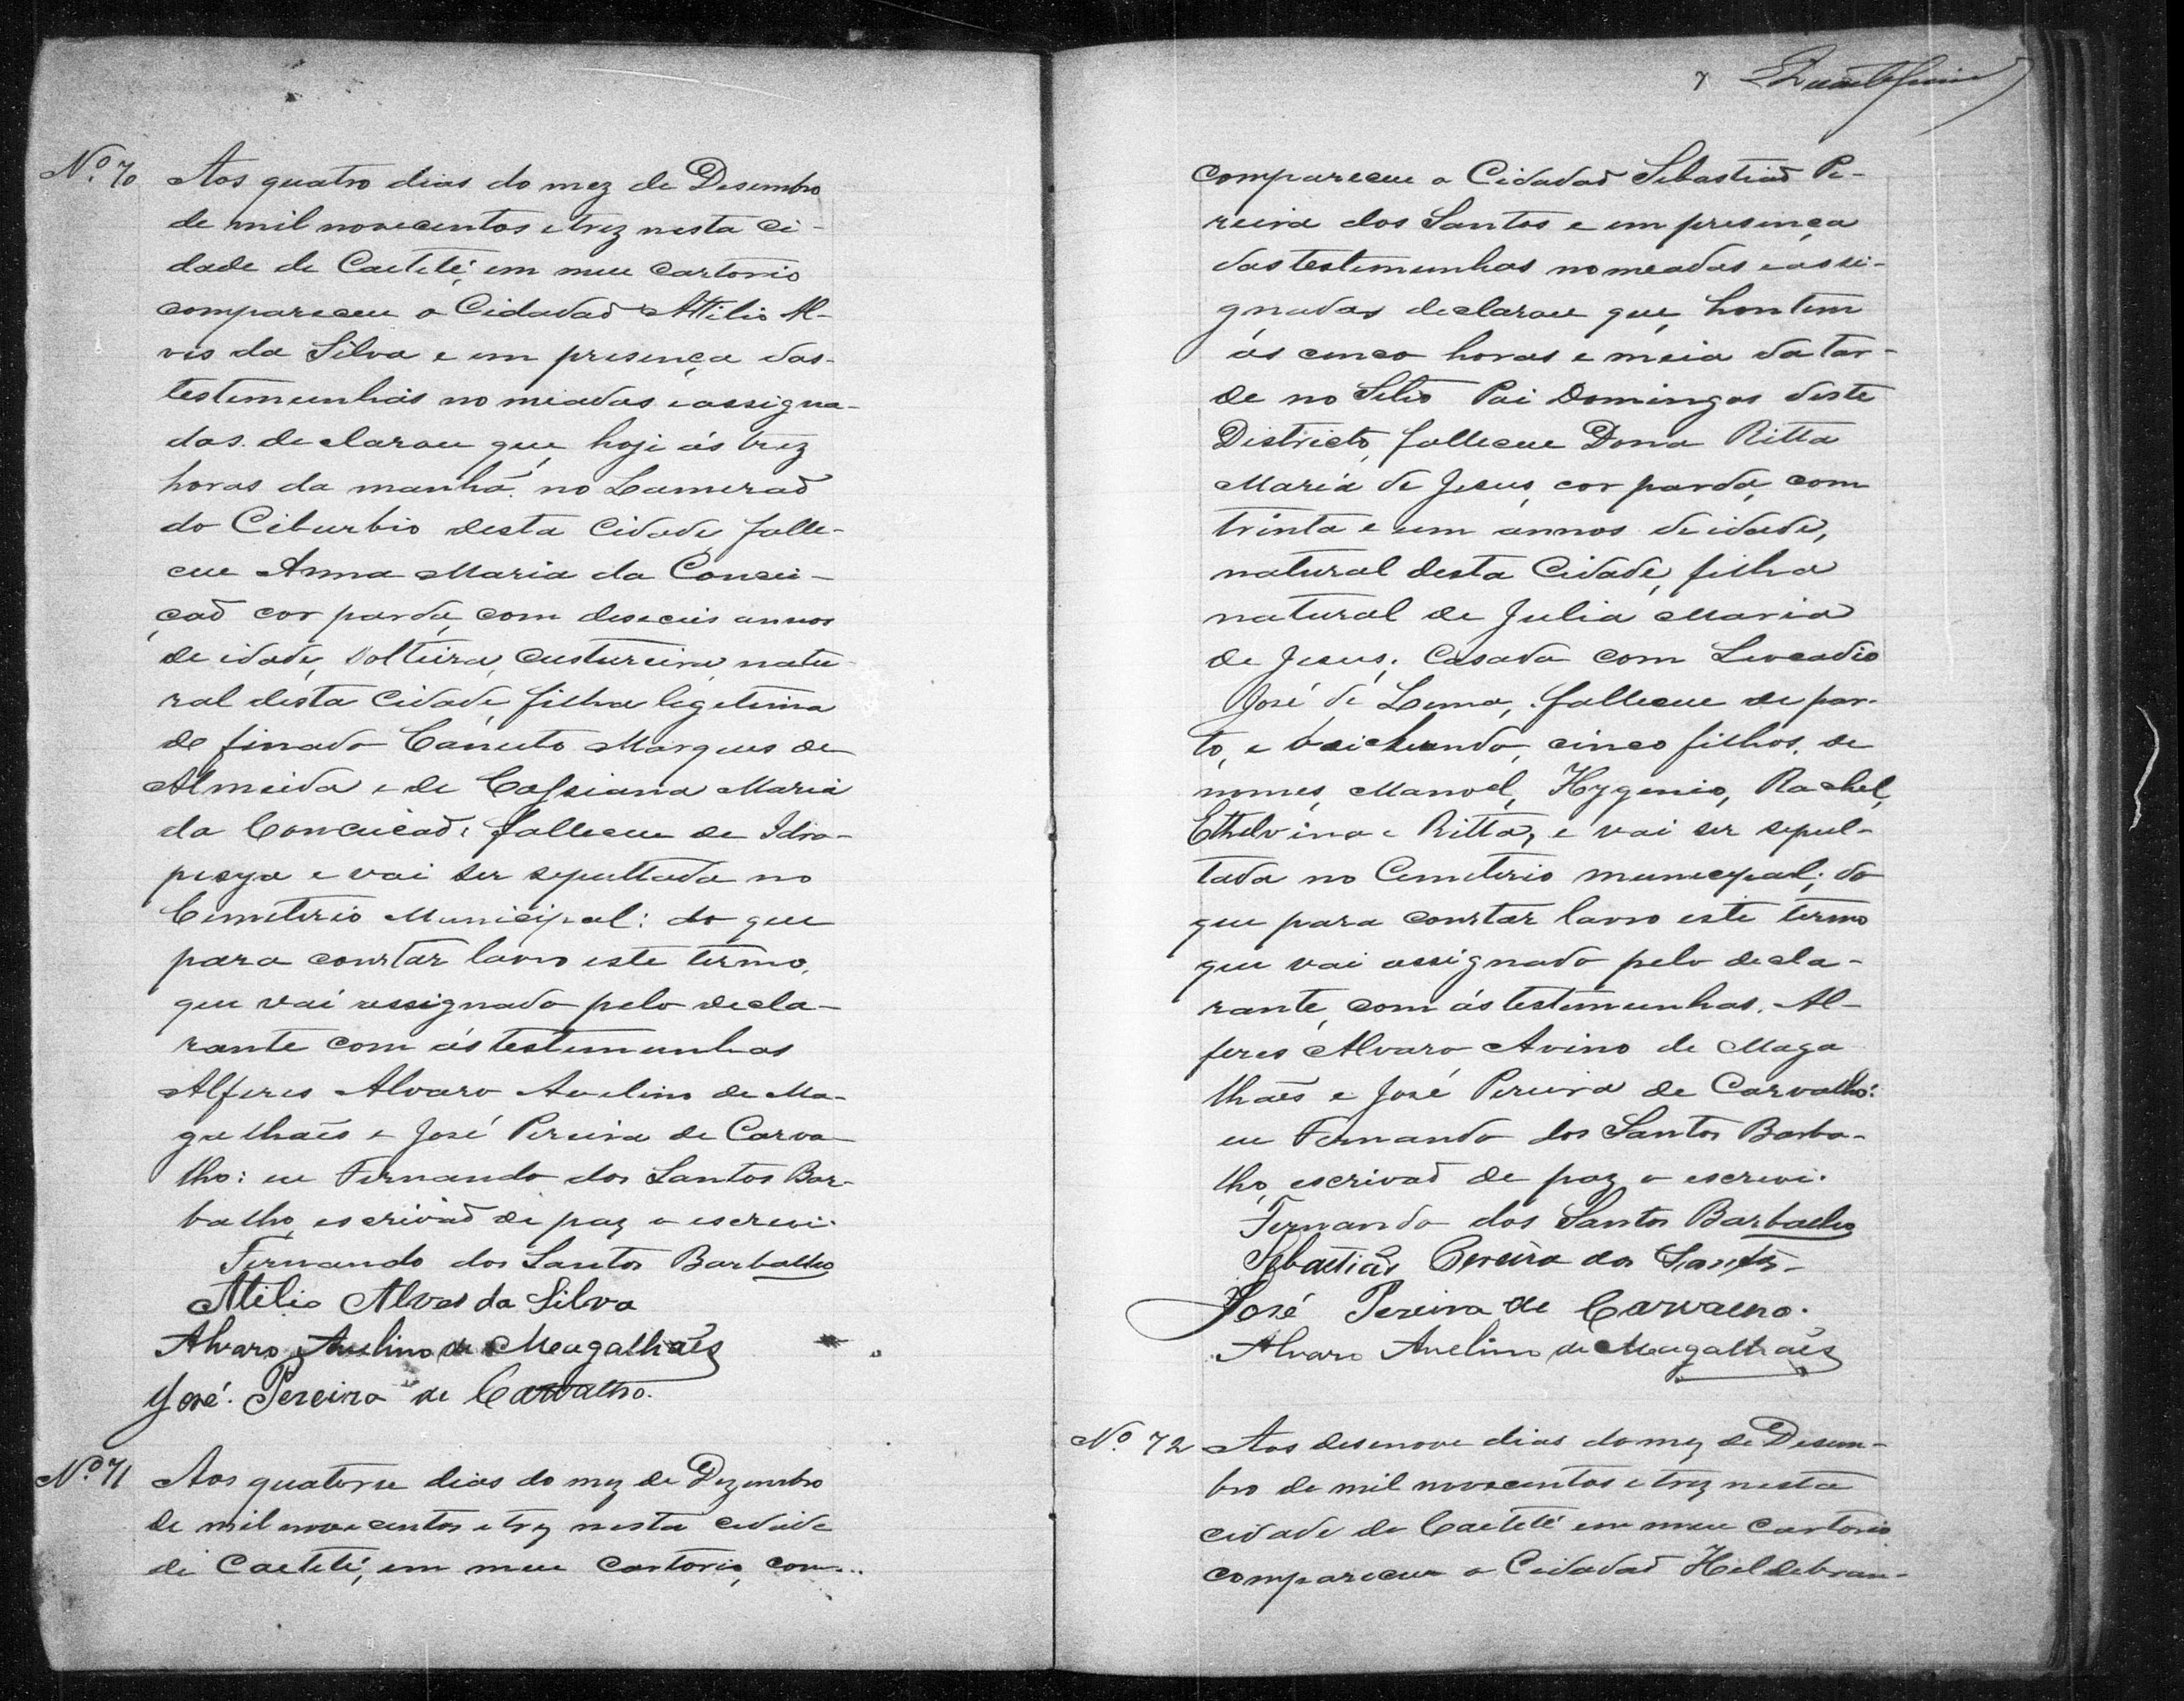 Nº 70 Aos quatro dias do mez de Desembro
de mil novecentos e trez nesta ci-
dade de Caeteté, em meu cartorio
compareceu o Cidadaõ Attilio Al-
ves da Silva e em presença das
testemunhas nomeadas e assigna-
das declarou que, hoje ás trez
horas da manhã no Lameraõ
do Ciburbio desta Cidade, falle-
ceu Anna Maria da Concei-
çaõ cor parda, com deseceis annos
de idade, Solteira, custureira, natu-
ral desta Cidade, filha legetima
do finado Canuto Marques de
Almeida e de Cassiana Maria
da Conceicaõ, falleceu de Idro-
pesya e vai ser sepultada no
Cemeterio Municipal: do que
para constar lavro este termo,
que vai assignado pelo decla-
rante com ás testemunhas
Alferes Alvaro Avelino de Ma-
galhaẽs e José Pereira de Carva-
lho: eu Fernando dos Santos Bar-
balho, escrivaõ de paz o escrevi.
Fernando dos Santos Barbalho
Atilio Alves da Silva
Alvaro Avelino de Magalhaẽs
José Pereira de Carvalho.
Nº 71 Aos quatorse dias do mez de Dezembro
de mil novecentos e trez nesta cidade
de Caeteté, em meu Cartorio, com-
7
compareceu o Cidadaõ Sebastiaõ Pe-
reira dos Santos e em presença
das testemunhas nomeadas e assi-
gnadas declarou que, hontem
ás cinco horas e meia da tar-
de no Sitio Pai Domingos deste
Districto, falleceu Dona Ritta
Maria de Jesus, cor parda, com
trinta e um annos de idade,
natural desta Cidade, filha
natural de Julia Maria
de Jesus, Casada com Leocadio
José de Lema, falleceu de par-
to, e deichando, cinco filhos, de
nomes, Manoel, Hygenio, Rachel,
Ethelvina e Ritta, e vai ser sepul-
tada no Cemeterio municypal; do
que para constar lavro este termo
que vai assignado pelo decla-
rante, com ás testemunhas. Al-
feres Alvaro Avino de Maga
lhaẽs e José Pereira de Carvalho:
eu Fernando dos Santos Barba-
lho, escrivaõ de paz o escrevi.
Fernando dos Santos Barbalho
Sebastiaõ Pereira dos Santos
José Pereira de Carvalho.
Alvaro Avelino de Magalhaẽs
Nº 72 Aos desenove dias do mez de Desem-
bro de mil novecentos e trez nesta
cidade de Caeteté em meu Cartorio
compareceu o Cidadaõ Heldebran-